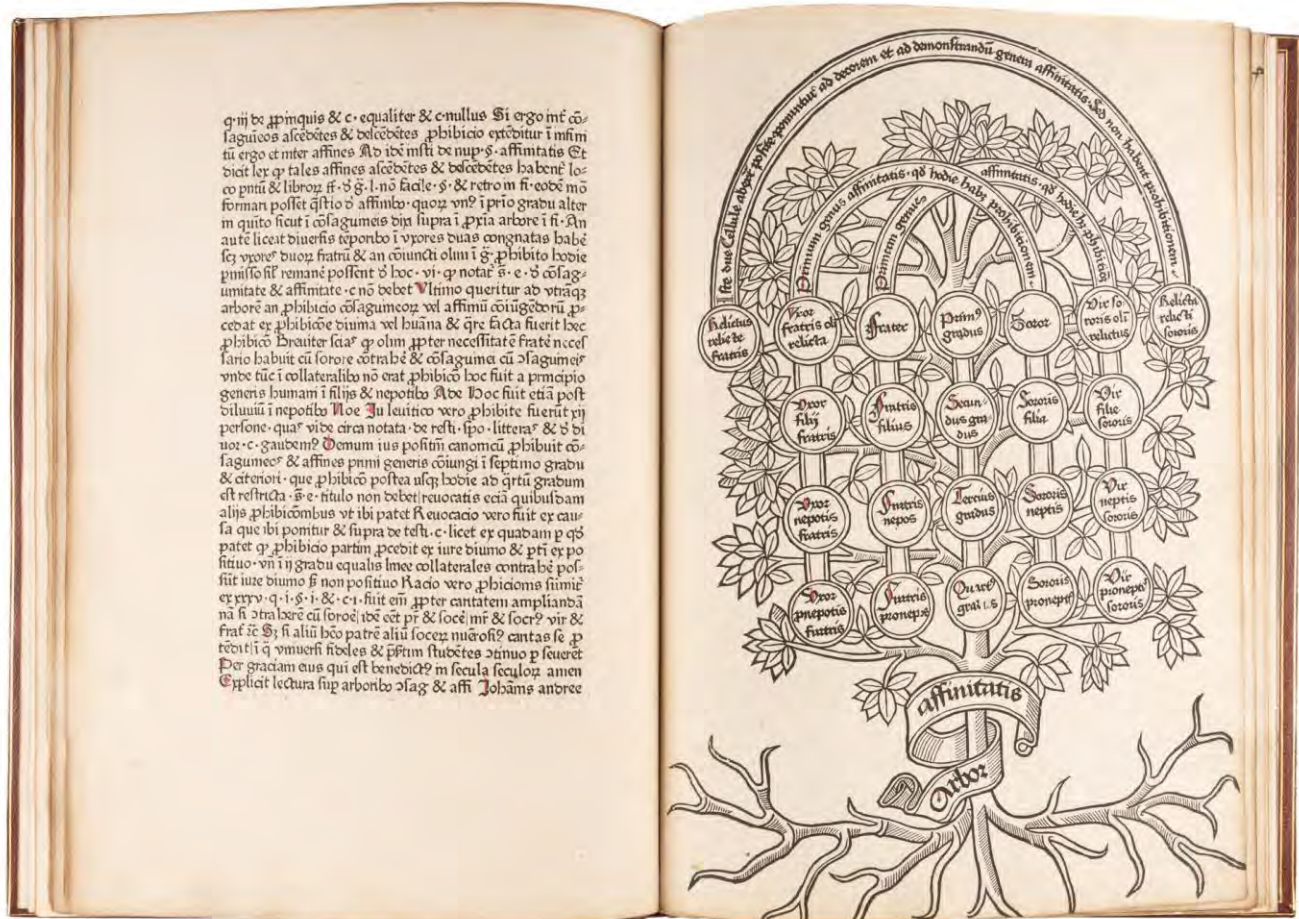 q·iij de ꝓpinquis & c· equaliter & c·nullus Si ergo int̄ cō⸗
saguīeos ascēdētes & descēdētes ꝓhibicio extēditur ī infini
tū ergo et inter affines Ad idē īsti de nup·§· affinitatis Et
dicit lex ꝙ tales affines ascēdētes & descēdētes habent̄ lo⸗
co pntū & libroꝝ ff· ð g̈·l·nō facile·§· & retro in fi·eodē mō
formari posset q̄stio ð affinibꝰ·quoꝝ vnꝰ ī prīo gradu alter
in quīto sicut ī cōsaguineis dixi supra ī ꝓxīa arbore ī fi·An
autē liceat diuersis tēporibꝰ ī vxores duas congnatas habē
scꝫ vxoreˢ duoꝝ fratrū & an cōiuncti olim ī g̈·ꝓhibito hodie
pmisso sil̄ remanē possent ð hoc·vi·ꝙ notat̄ s̄·e·ð cōsag⸗
uinitate & affinitate·c nō debet Vltimo queritur ad vtrāqꝫ
arborē an ꝓhibicio cōsaguineoꝝ vel affiniū cōiūgēdorū ꝓ⸗
cedat ex ꝓhibicōe diuina vel huāna & q̄re facta fuerit hec
ꝓhibicō Breuiter sciaˢ ꝙ olim ꝓpter necessitatē fratē neces
sario habuit cū sorore cōtrahē & cōsaguinei cū ↄsagumeiˢ
vnde tūc ī collateralibꝰ nō erat ꝓhibicō hoc fuit a principio
generis humani ī filijs & nepotibꝰ Ade Hoc fuit etiā post
diluuiū ī nepotibꝰ Noe Ju leuitico vero ꝓhibite fuerūt xij
persone·quaˢ vide circa notata·de resti·spo·litteraˢ & ð di
uor·c·gaudemꝰ Demum ius positiuū canonicū ꝓhibuit cō⸗
saguineoˢ & affines primi generis cōiungi ī septimo gradu
& citeriori·que ꝓhibicō postea usqꝫ hodie ad q̄rtū gradum
est restricta·s̄·e·titulo non debet reuocatis eciā quibusdam
alijs ꝓhibicōnibus vt ibi patet Reuocacio vero fuit ex cau⸗
sa que ibi ponitur & supra de testi·c·licet ex quadam p qð
patet ꝙ ꝓhibicio partim ꝓcedit ex iure diuino & ptī ex po
sitiuo·vn̄ ī ij gradu equalis linee collaterales contrahē pos⸗
sūt iure diuino s̄ꝫ non positiuo Racio vero ꝓhibicionis sumit̄
ex xxxv·q·i·§·i·& ·c·ı·fuit em̄ ꝓpter caritatem ampliandā
nā si ↄtrahere cū soroē idē eēt pr̄ & socē mr̄ & socrꝰ vir &
frat̄ ⁊c Sꝫ si aliū hēo patrē aliū socerꝫ nūerosiꝰ caritas se ꝓ
tēdit ī q̄ vniuersi fideles & p̄sertim studētes ↄtinuo p seuerēt
Per graciam eius qui est benedictꝰ in secula seculoꝝ amen
Explicit lectura sup arboribꝰ ↄsag· & affi Johānis andree
Iste due Cellule abexͣ posite ponuntur ad decorem et ad demonstrandū genera affinitatis·Sed non habent prohibitionem·
Primum genus affinitatis·qð hodie habꝫ prohibitionem·
Primum genus affinitatis·qð hodie hꝫ phibitiōꝫ
Relictus relicte fratris
Vxor fratris oli relicta
Frater
Primꝰ gradus
Soror
Vir so roris oli relictus
Relicta relicti sororis
Vxor filij fratris
Fratris filius
Secun⸗ dus gra⸗ dus
Sororis filia
Vir filie sororis
Vxor nepotis fratris
Fratris nepos
Tercius gradus
Sororis neptis
Vir neptis sororis
Vxor pnepotis fratris
Fratris pronepos
Quartꝰ gradus
Sororis proneptis
Vir proneptis sororis
affinitatis
Arbor